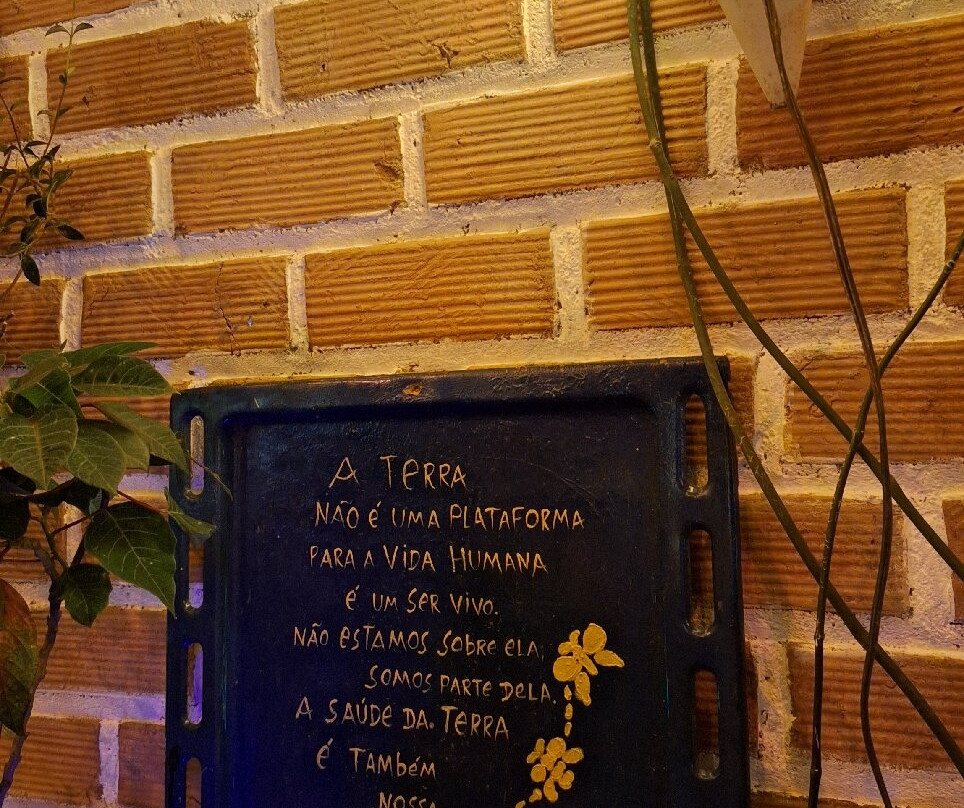 A TERRA
NÃO É UMA PLATAFORMA
PARA A VIDA HUMANA
É UM SER VIVO.
NÃO ESTAMOS SOBRE ELA,
SOMOS PARTE DELA.
A SAÚDE DA TERRA
É TAMBÉM
NOSSA